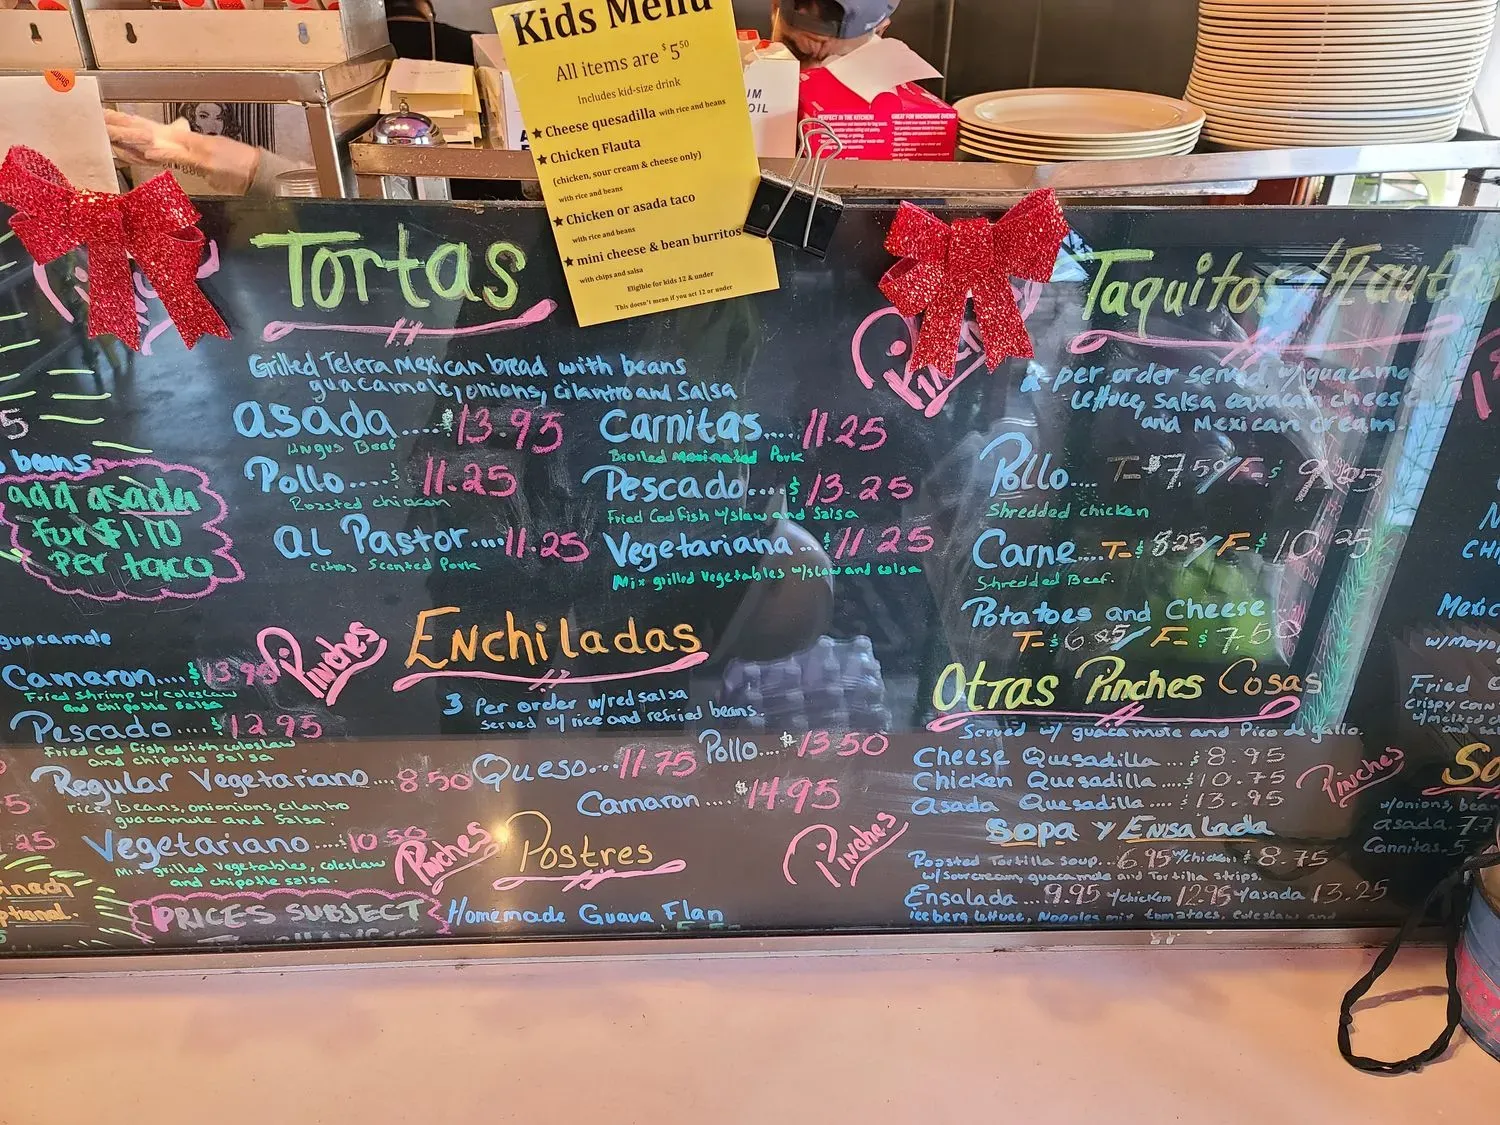 Kids Menu
All items are $5.50
Includes kid-size drink
★ Cheese quesadilla with rice and beans
★ Chicken Flauta
(chicken, sour cream & cheese only)
with rice and beans
★ Chicken or asada taco
with rice and beans
★ mini cheese & bean burritos
with chips and salsa
Eligible for kids 12 & under
This doesn't mean if you act 12 or under
PERFECT IN THE KITCHEN!
Tortas
Grilled Telera Mexican bread with beans
guacamole, onions, cilantro and Salsa
asada.... $13.95
Angus Beef
Pollo....$ 11.25
Roasted chicken
AL Pastor....11.25
Citrus Scented Pork
Carnitas.... 11.25
Broiled Marinated Pork
Pescado....$ 13.25
Fried Cod Fish w/slaw and Salsa
Vegetariana...$11.25
Mix grilled vegetables w/slaw and salsa
beans
add asada
for $1.10
per taco
guacamole
Camaron....$13.95
Fried Shrimp w/ Coleslaw
and chipotle Salsa
Pescado....$12.95
Fried Cod Fish with coleslaw
and chipotle salsa
Regular Vegetariano....8.50
rice, beans, onionions, cilantro
guacamole and Salsa.
Vegetariano....10.50
Mix grilled vegetables, coleslaw
and chipotle salsa.
PRICES SUBJECT
Pinches
Enchiladas
3 Per order w/red salsa
Served w/ rice and refried beans.
Queso...11.75
Pollo...$13.50
Camaron....$14.95
Pinches
Postres
Homemade Guava Flan
Pinches
Taquitos/Flautas
per order served w/guacamo
Lettuce, salsa oaxacan cheese
and Mexican cream.
Pollo.... T-$7.50/F-$ 9.25
Shredded chicken
Carne....T-$8.25/F-$10.25
Shredded Beef.
Potatoes and Cheese...
T-$6.25/ F-$7.50
Otras Pinches Cosas
Served w/ guacamole and Pico de gallo.
Cheese Quesadilla...$8.95
Chicken Quesadilla....$10.75
Asada Quesadilla....$13.95
Pinches
Sopa y Ensalada
Roasted Tortilla Soup...6.95 w/chicken $8.75
w/Sourcream, guacamole and Tortilla strips.
Ensalada...9.95 w/chicken 12.95 w/asada 13.25
iceberg lettuce, Nopales mix tomatoes, coleslaw and
Fried
w/onions, bean
asada.